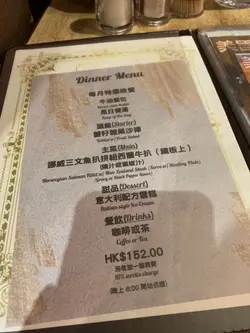 Dinner Menu
每月特選晚餐
牛油餐包
Bread with Butter
是日餐湯
Soup of the Day
頭盤(Starter)
蟹籽雜果沙律
主菜(Main)
挪威三文魚扒拼紐西蘭牛扒（鐵板上）
(燒汁或黑椒汁)
Norwegian Salmon Fillet w/ New Zealand Steak (Serve w/ Sizzling Plate)
Gravy or Black Pepper Sauce)
甜品(Dessert)
意大利配方雪糕
Italian-style Ice Cream
餐飲(Drinks)
咖啡或茶
Coffee or Tea
HK$152.00
另收加一服務費
10% service charge
(晚上 6:00 開始供應)